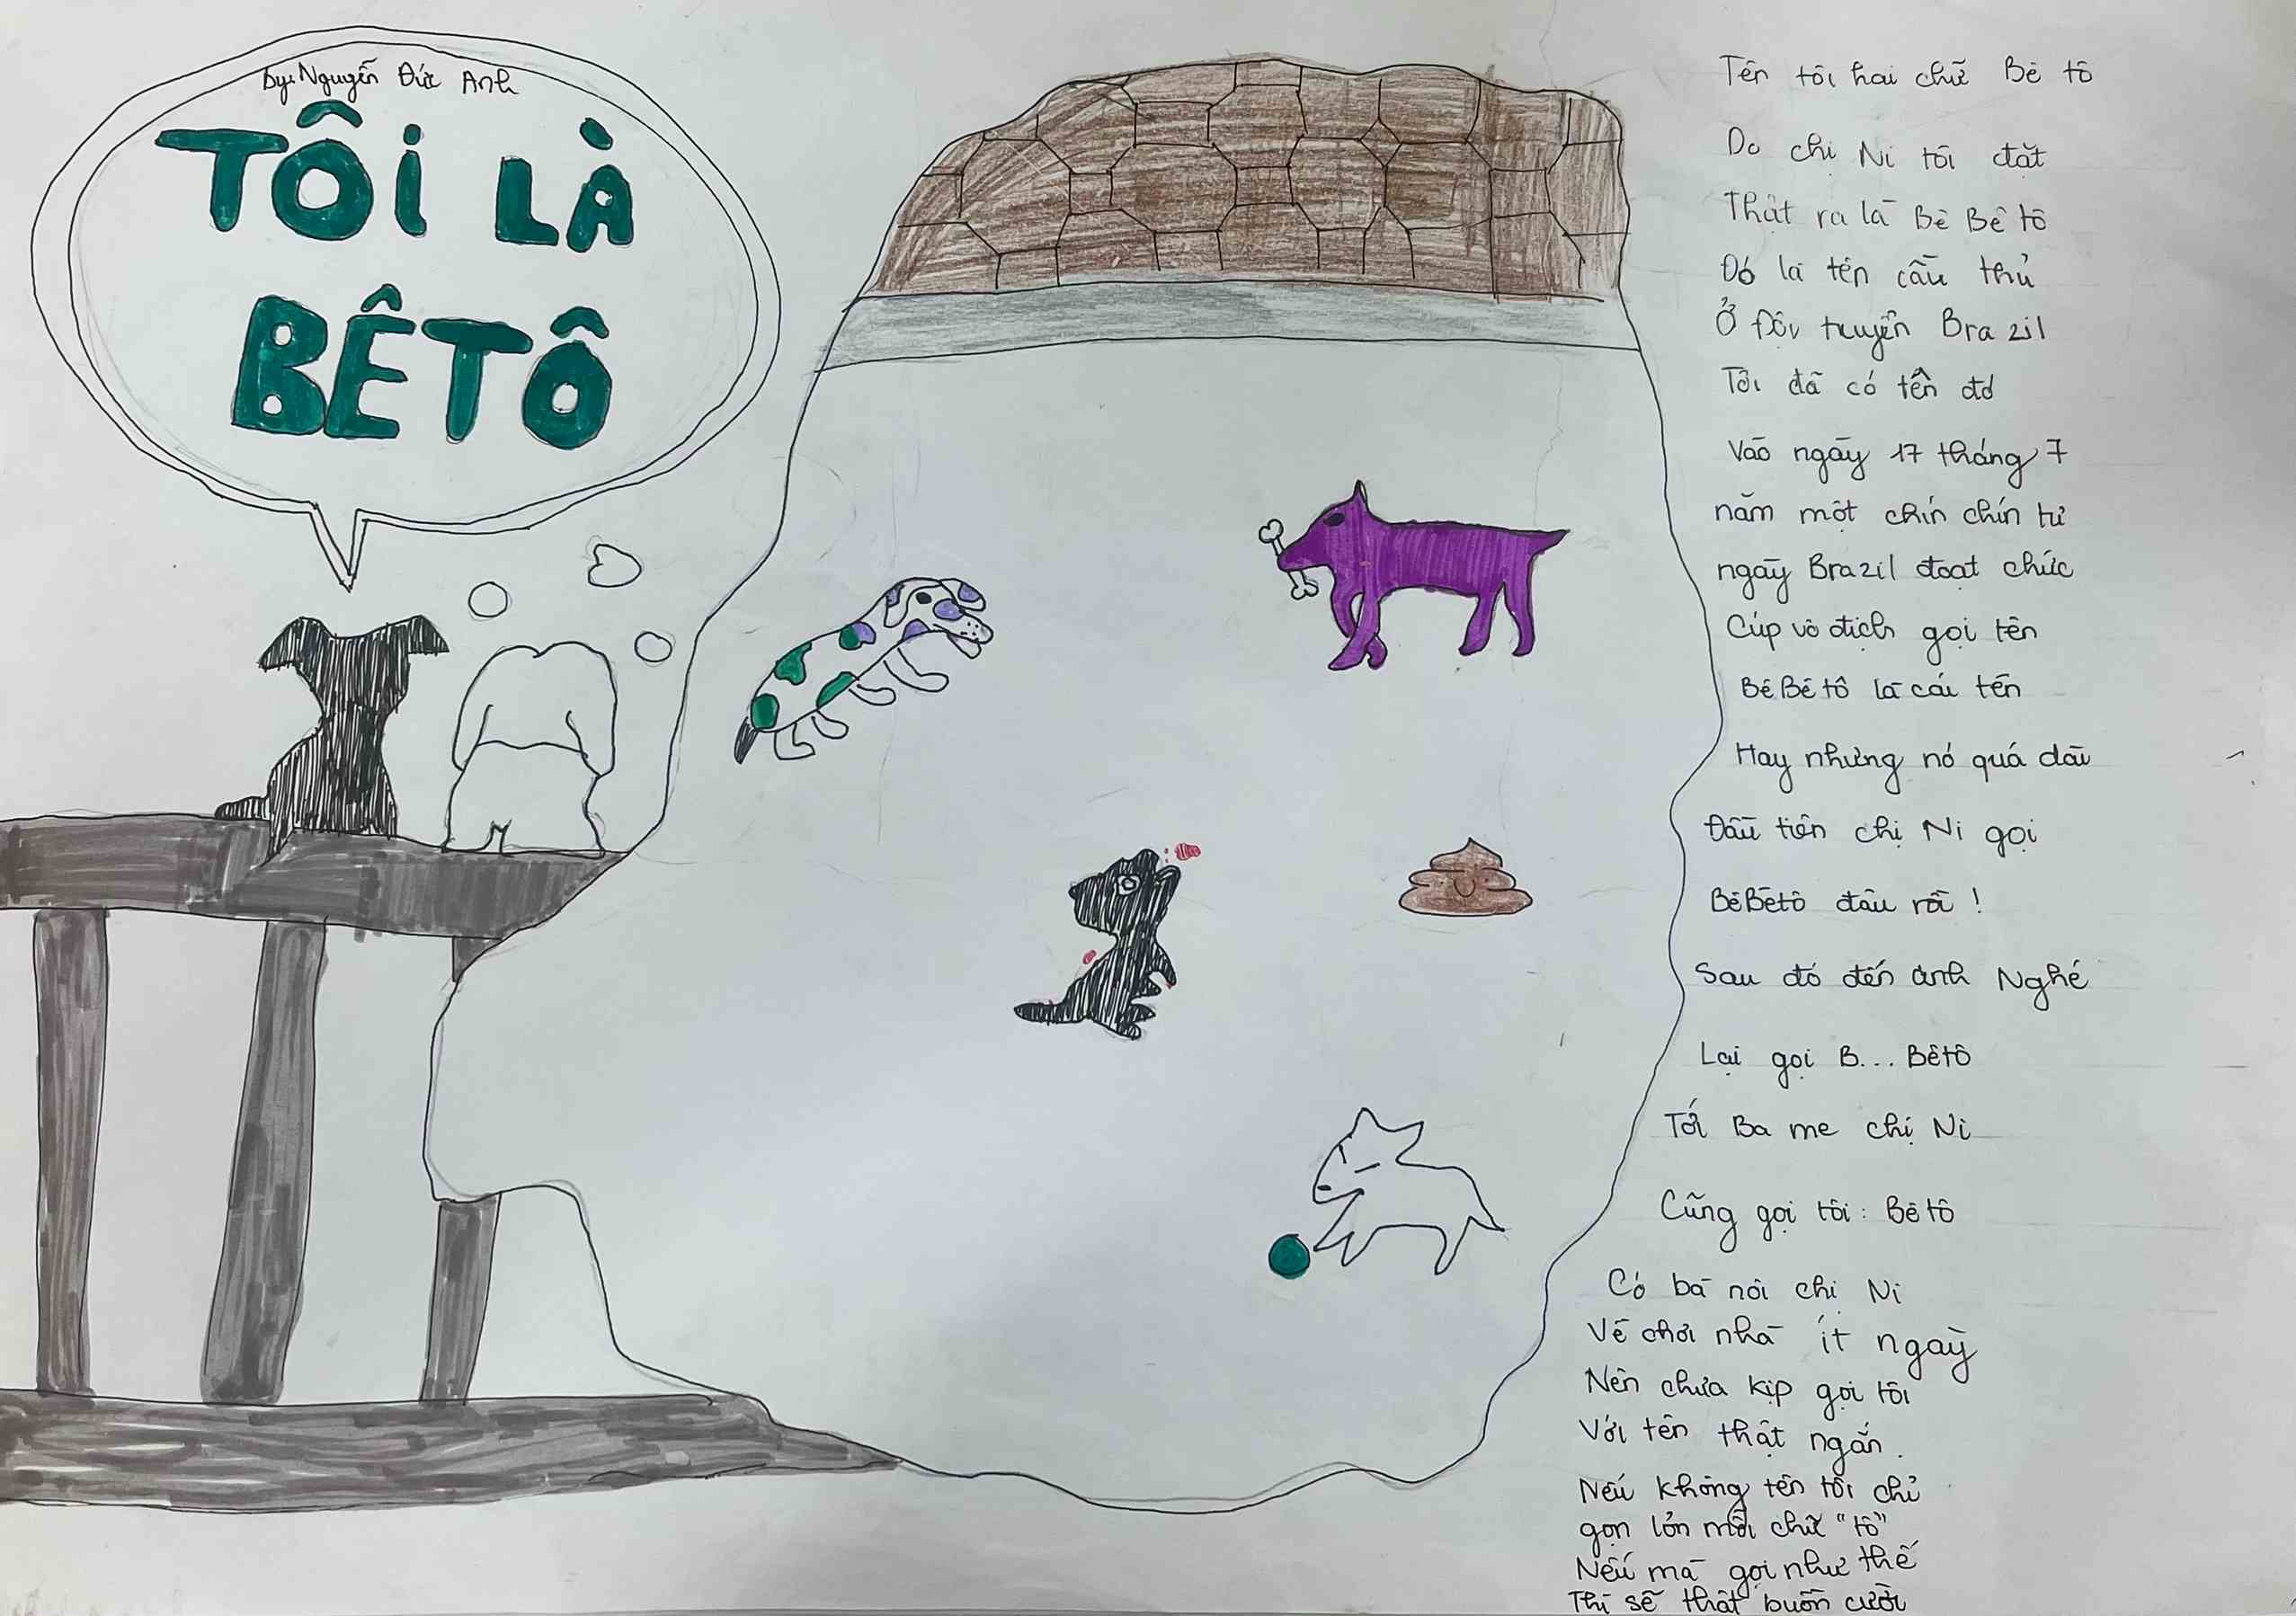 by: Nguyễn Đức Anh
TÔI LÀ
BÊTÔ
Tên tôi hai chữ Bê tô
Do chị Ni tôi đặt
Thật ra là Bê Bê tô
Đó là tên cầu thủ
Ở đội tuyển Brazil
Tôi đã có tên đó
Vào ngày 17 tháng 7
năm một chín chín tư
ngày Brazil đoạt chức
Cúp vô địch gọi tên
BêBêtô là cái tên
Hay nhưng nó quá dài
Đầu tiên chị Ni gọi
BêBêtô đâu rồi !
Sau đó đến anh Nghé
Lại gọi B... Bêtô
Tới Ba mẹ chị Ni
Cũng gọi tôi: Bê tô
Có bà nội chị Ni
Về chơi nhà ít ngày
Nên chưa kịp gọi tôi
Với tên thật ngắn.
Nếu không tên tôi chỉ
gọn lỏn mỗi chữ "tô"
Nếu mà gọi như thế
Thì sẽ thật buồn cười